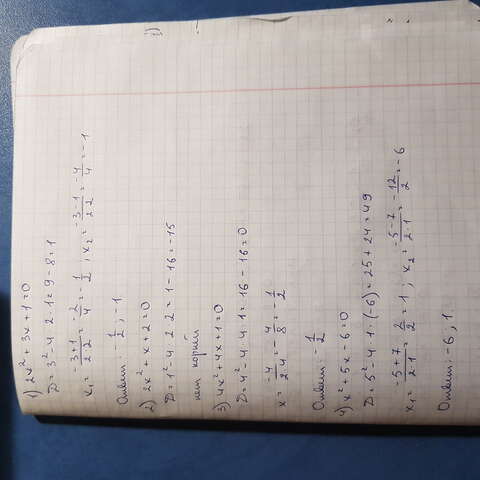 1) 2x² + 3x + 1 = 0
D = 3² - 4 · 2 · 1 = 9 - 8 = 1
x₁ = (-3+1)/(2·2) = -2/4 = -1/2 ; x₂ = (-3-1)/(2·2) = -4/4 = -1
Ответ: -1/2 ; -1
2) 2x² + x + 2 = 0
D = 1² - 4 · 2 · 2 = 1 - 16 = -15
нет корней
3) 4x² + 4x + 1 = 0
D = 4² - 4 · 4 · 1 = 16 - 16 = 0
x = -4/(2·4) = -4/8 = -1/2
Ответ: -1/2
4) x² + 5x - 6 = 0
D = 5² - 4 · 1 · (-6) = 25 + 24 = 49
x₁ = (-5+7)/(2·1) = 2/2 = 1 ; x₂ = (-5-7)/(2·1) = -12/2 = -6
Ответ: -6 ; 1